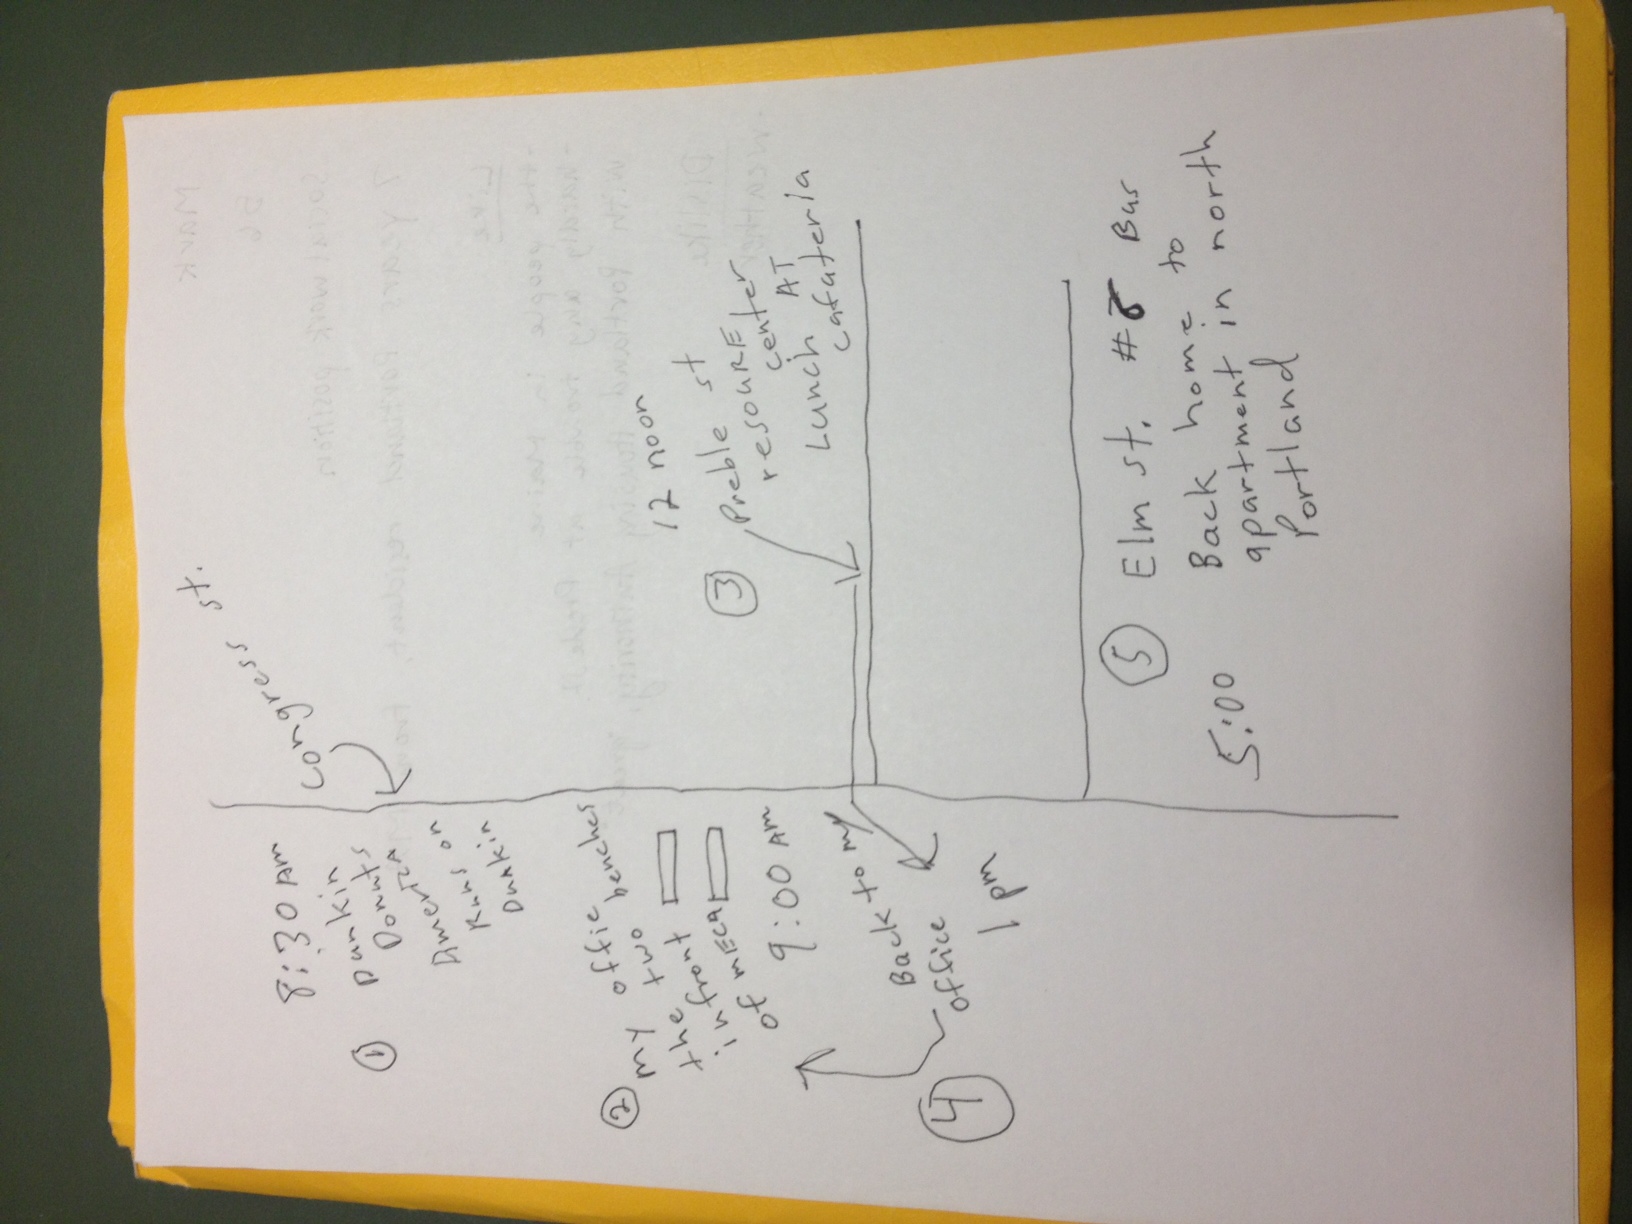 Congress st.
8:30 AM
① Dunkin
Donuts
America
Runs on
Dunkin
② my office
the two benches
in front
of MECA
9:00 AM
12 noon
③ Preble st
resourE
center
Lunch AT
cafateria
④ Back to my
office
1 pm
⑤ Elm st. #8 Bus
5:00
Back home to
apartment in north
Portland